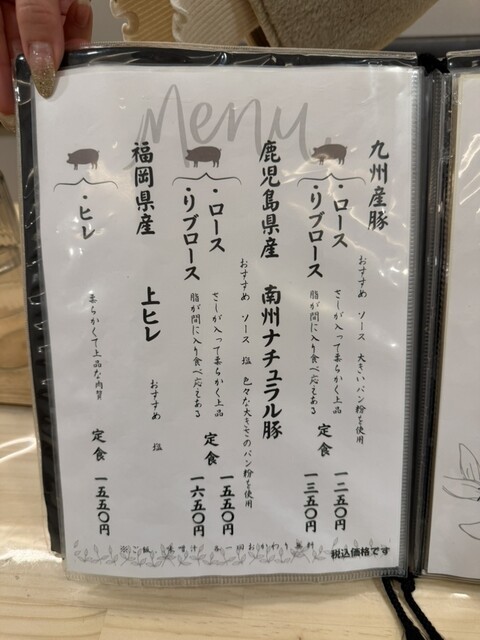 Menu
九州産豚
おすすめ ソース 大きいパン粉を使用
・ロース さしが入って柔らかく上品 一二五〇円
・リブロース 脂が間に入り食べ応えある 一三五〇円
定食
鹿児島県産 南州ナチュラル豚
おすすめ ソース 塩 色々な大きさのパン粉を使用
・ロース さしが入って柔らかく上品 一五五〇円
・リブロース 脂が間に入り食べ応えある 一六五〇円
定食
福岡県産 上ヒレ
おすすめ 塩
・ヒレ 柔らかくて上品な肉質 定食 一五五〇円
おかわり無料
税込価格です